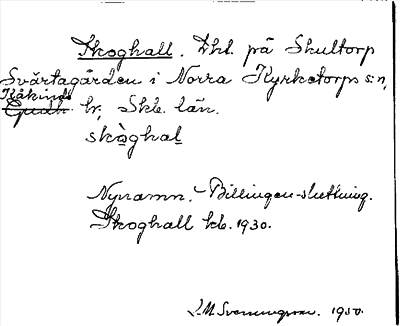 Skoghall. Lht. på Skultorp
Svärtagården i Norra Kyrketorps s:n,
Kåkinds
Gudh. hr, Skb. län.
skòghal
Nynamn. Billingen-sluttning.
Skoghall kb. 1930.
J.M. Svenungsson. 1950.